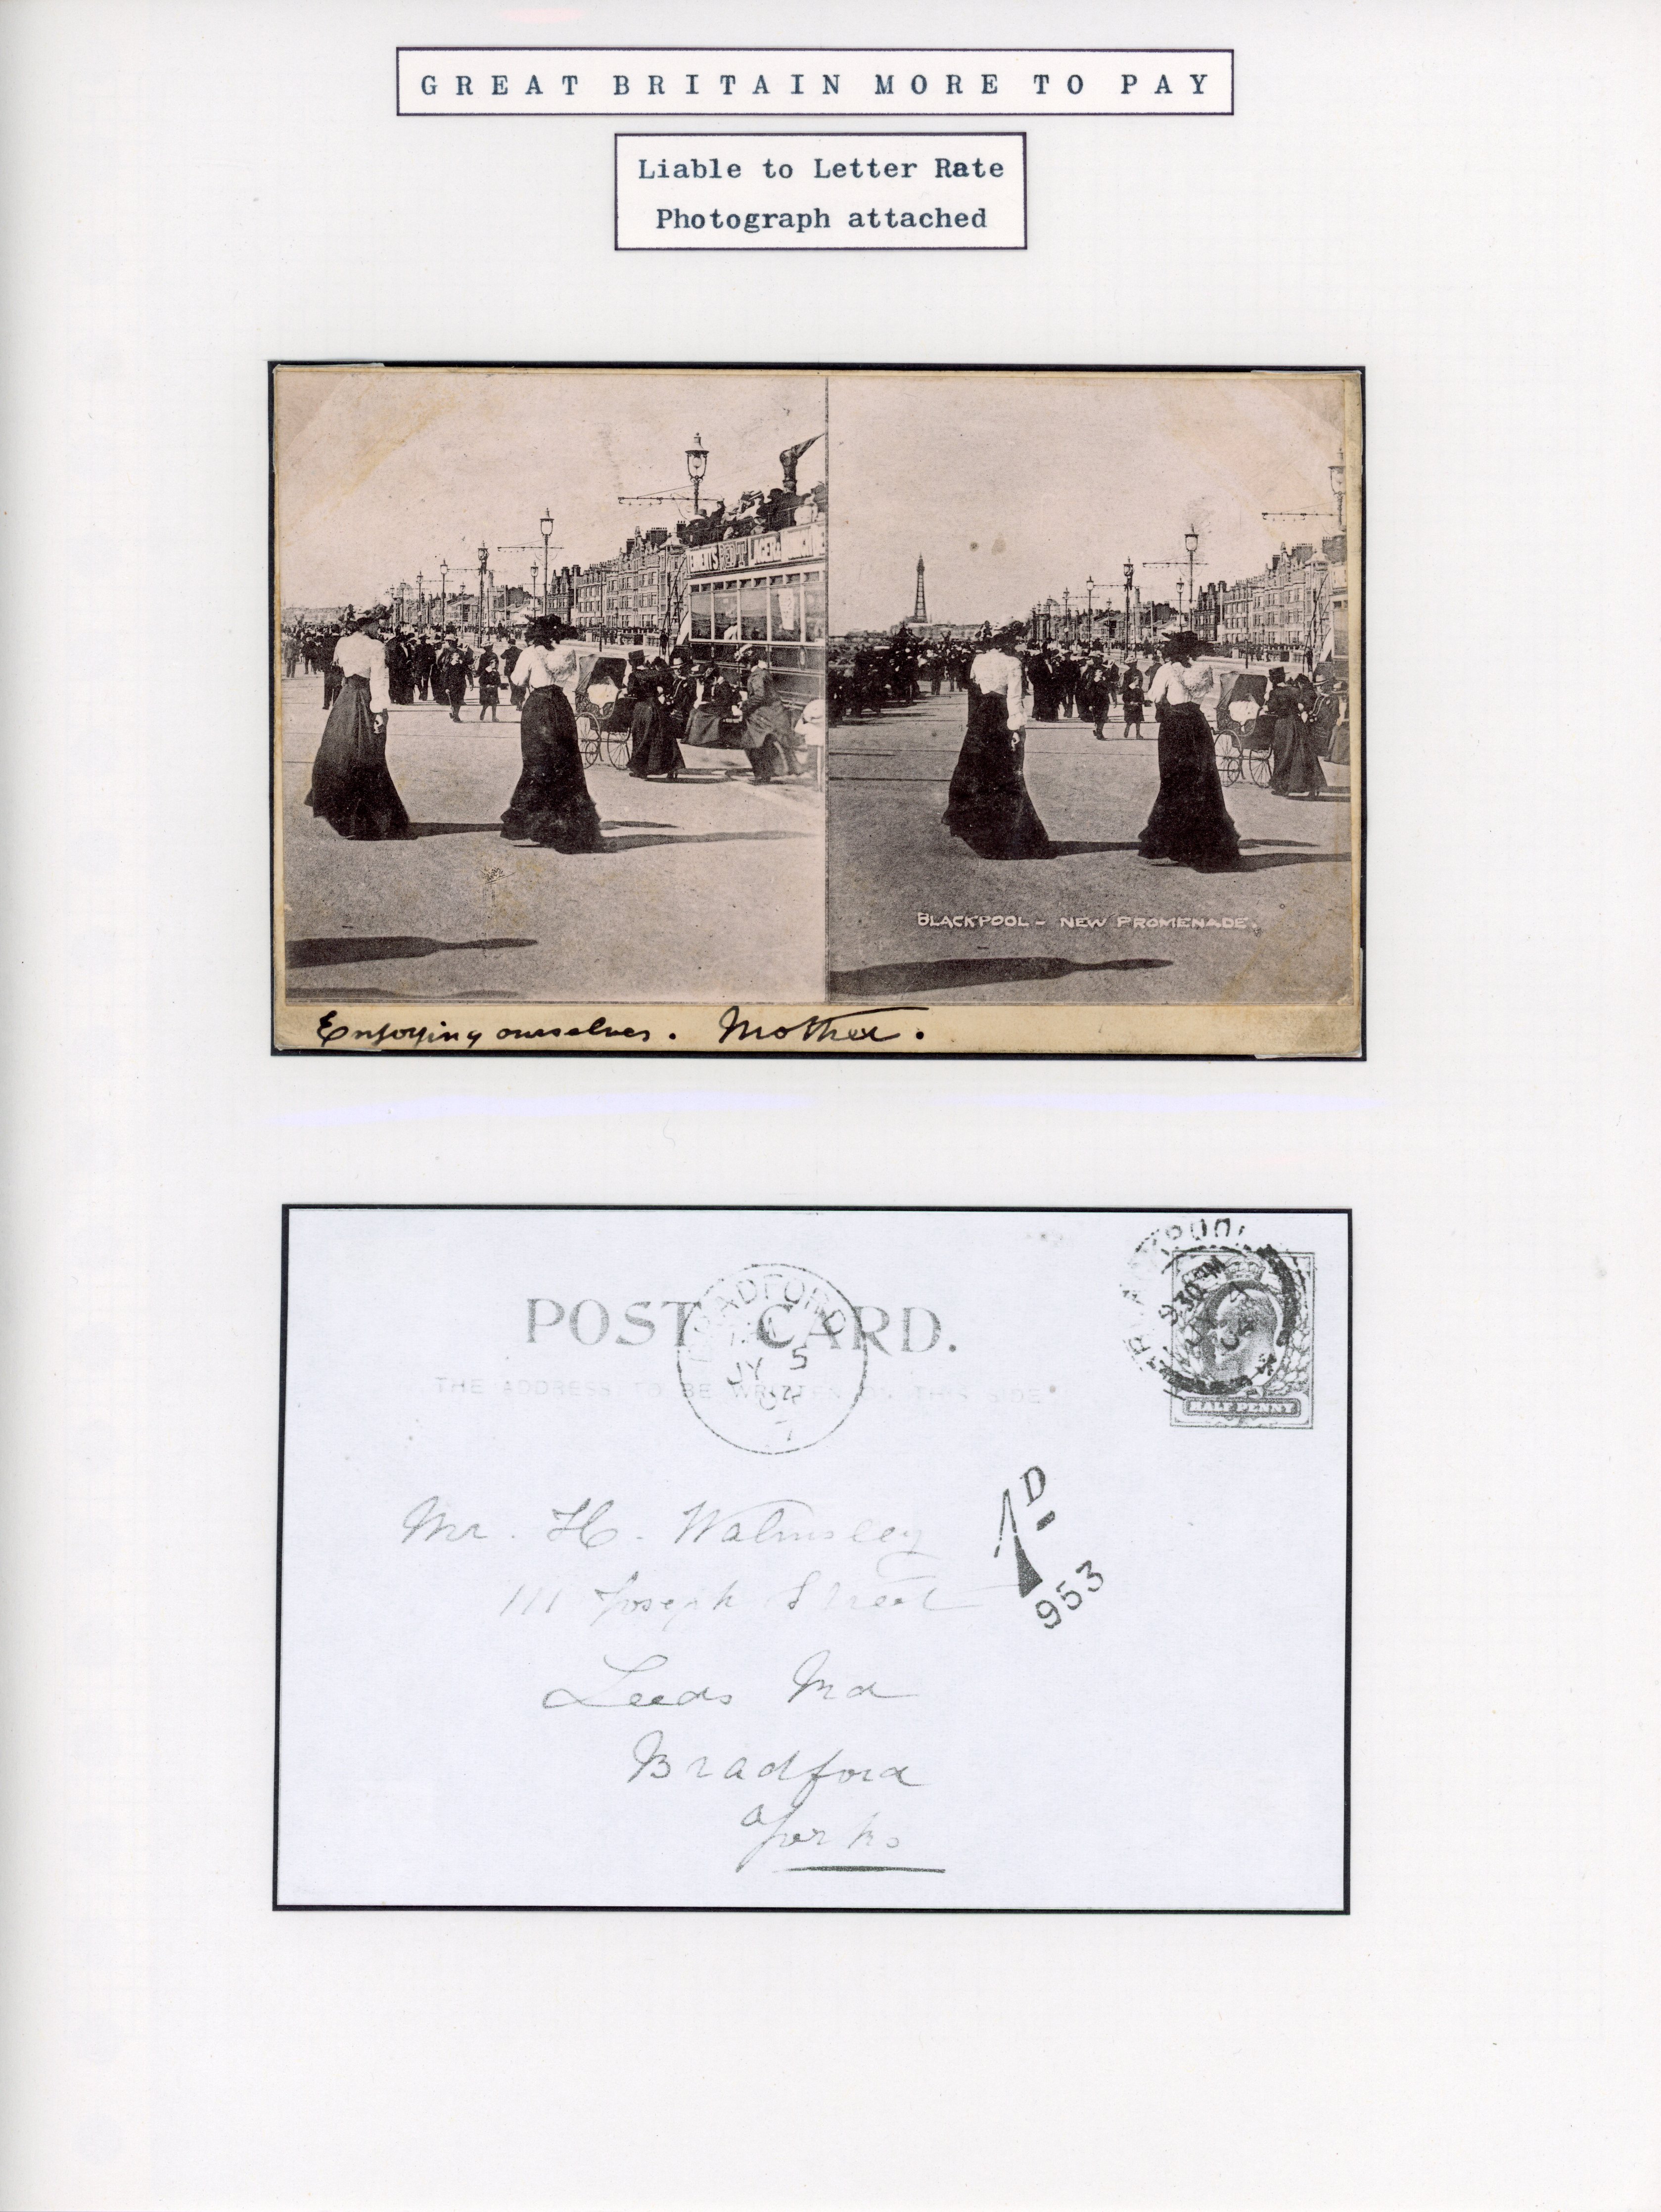 GREAT BRITAIN MORE TO PAY
Liable to Letter Rate
Photograph attached
LAGER
BLACKPOOL - NEW PROMENADE.
Enjoying ourselves. Mother.
POST CARD.
THE ADDRESS TO BE WRITTEN ON THIS SIDE
BRADFORD
JY 5
04
7
BLACKPOOL
930PM
HALF PENNY
1D
953
Mr. H. Walmsley
111 Joseph Street
Leeds Rd
Bradford
Yorks